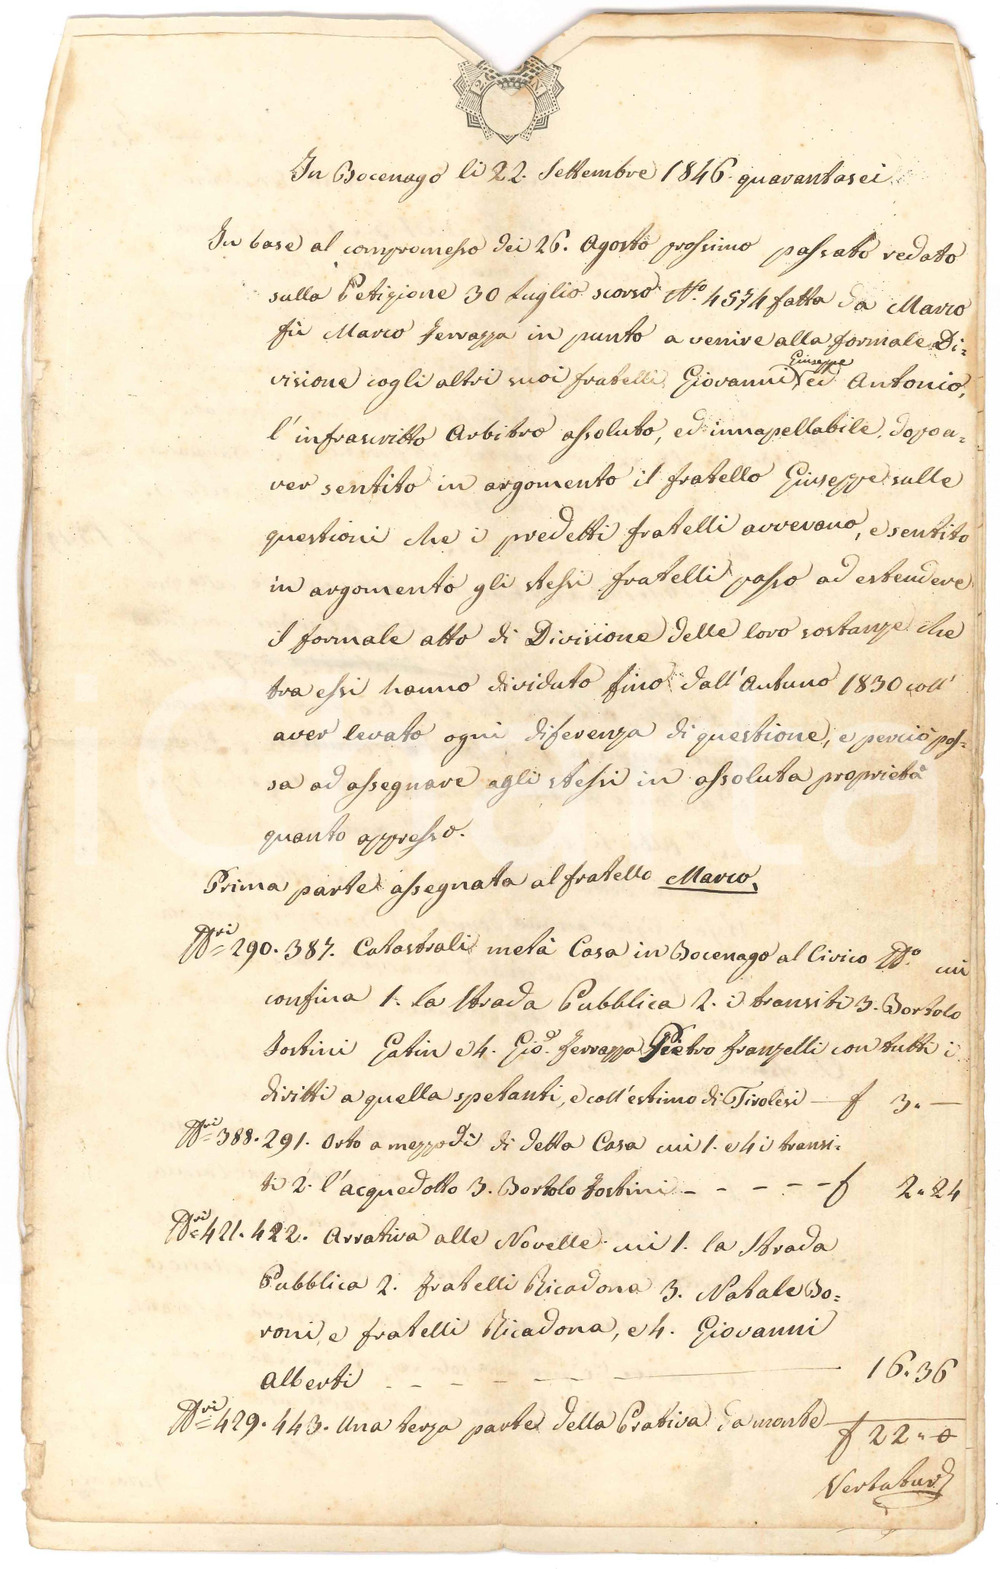 In Bocenago li 22. Settembre 1846. quarantasei
In base al compromesso dei 26. Agosto prossimo passato redato
sulla Petizione 30 Luglio scorso N.o 4574 fatta da Marco
fù Marco Ferrazza in punto a venire alla formale Di=
visione cogli altri suoi fratelli Giovanni Giuseppe ed Antonio,
l'infrascritto Arbitro assoluto, ed innapellabile, dopo a=
ver sentito in argomento il fratello Giuseppe sulle
questioni che i predetti fratelli avvevano, e sentito
in argomento gli stessi fratelli passo ad estendere
il formale atto di Divisione delle loro sostanze che
tra essi hanno dividuto fino dall'Autuno 1830 coll'
aver levato ogni diferenza di questione, e perciò pas=
sa ad assegnare agli stessi in assoluta proprietà
quanto appresso.
Prima parte assegnata al fratello Marco.
Nri 290. 387. Catastrali metà Casa in Bocenago al Civico No. cui
confina 1. la Strada Pubblica 2. i transiti 3. Bortolo
Tostini Gatin e 4. Gio. Ferrazza Pietro Franzelli con tutti i
diritti a quella spetanti, e coll'estimo di Tirolesi — f 3. —
Nri 388. 291. Orto a mezzodì di detta Casa cui 1. e 4 i transi=
ti 2. l'acquedotto 3. Bortolo Tostini - - - - - f 2. 24
Nri 421. 422. Arrativa alle Novelle cui 1. la Strada
Pubblica 2. fratelli Ricadona 3. Natale Bo=
roni, e fratelli Ricadona, e 4. Giovanni
Alberti - - - - 16. 36
Nri 429. 443. Una terza parte della Prativa da monte
f 22. 0